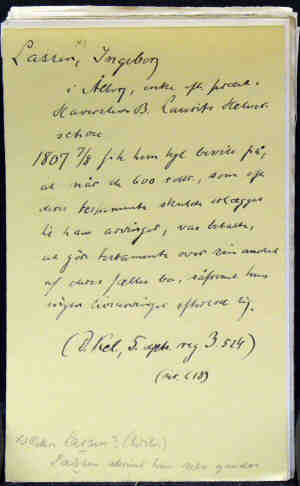 Lassen, x) Ingeborg
i Ålborg, enke eft. procur.
B. Laurits Helver-
schou
1807 7/8 fik hun kgl. bevill. på,
at når de 600 rdlr., som eft.
deres testamente skulde udlægges
til hans arvinger, var betalte,
at gør testamente over sin andel
af deres fælles bo, såfremt hun
ingen livsarvinger efterlod sig.
(D. Kel., 5. dptr. reg 3 524)
(nr. 618)
Lassen? (Weber)